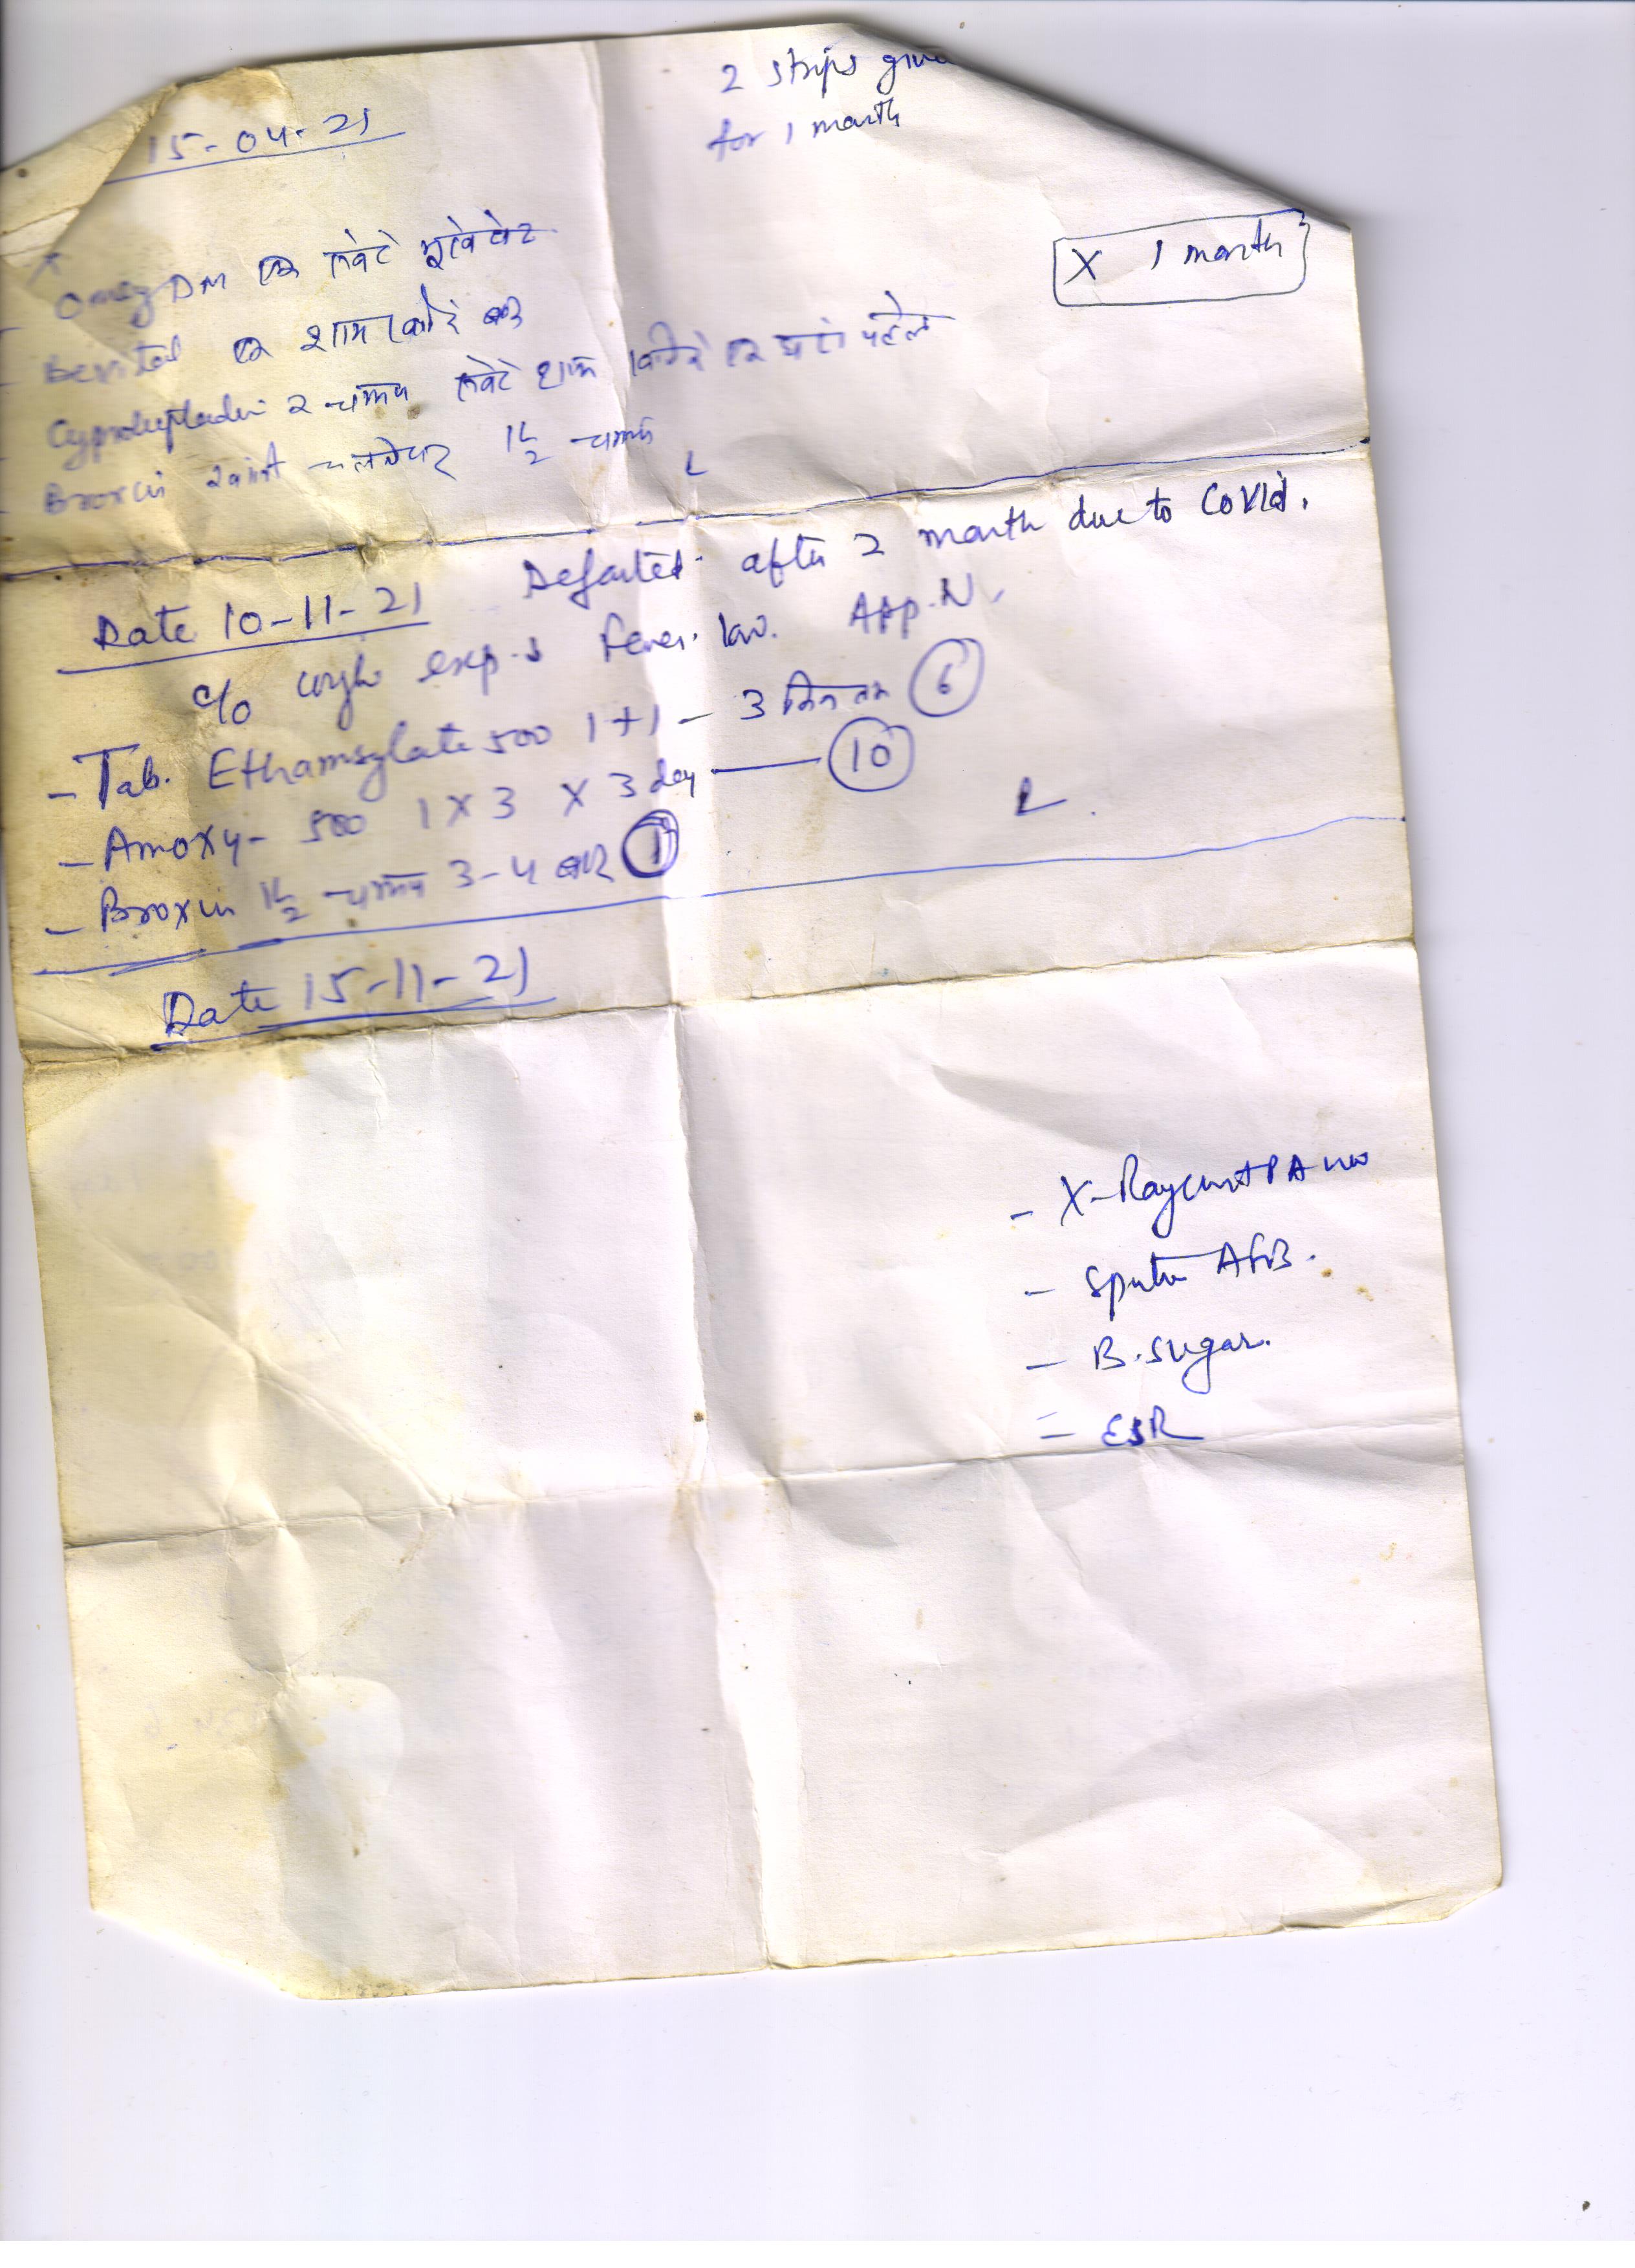 2 strips given
for 1 month
15-04-21
Omez DM एक सवेरे भूखे पेट
X 1 month
Bevital एक शाम को
Cyproheptadin 2 चम्मच सवेरे शाम एक घंटे पहले
Broxin खांसी चलनेपर 1 1/2 चम्मच
Date 10-11-21 Defaulted after 2 month due to Covid.
c/o cough exp. Fever. App. N.
- Tab. Ethamsylate 500 1+1 - 3 दिन तक 6
- Amoxy- 500 1 X 3 X 3 day 10
- Broxin 1 1/2 चम्मच 3-4 बार 1
Date 15-11-21
- X-Ray chest PA
- Sputum AFB.
- B. Sugar.
= ESR